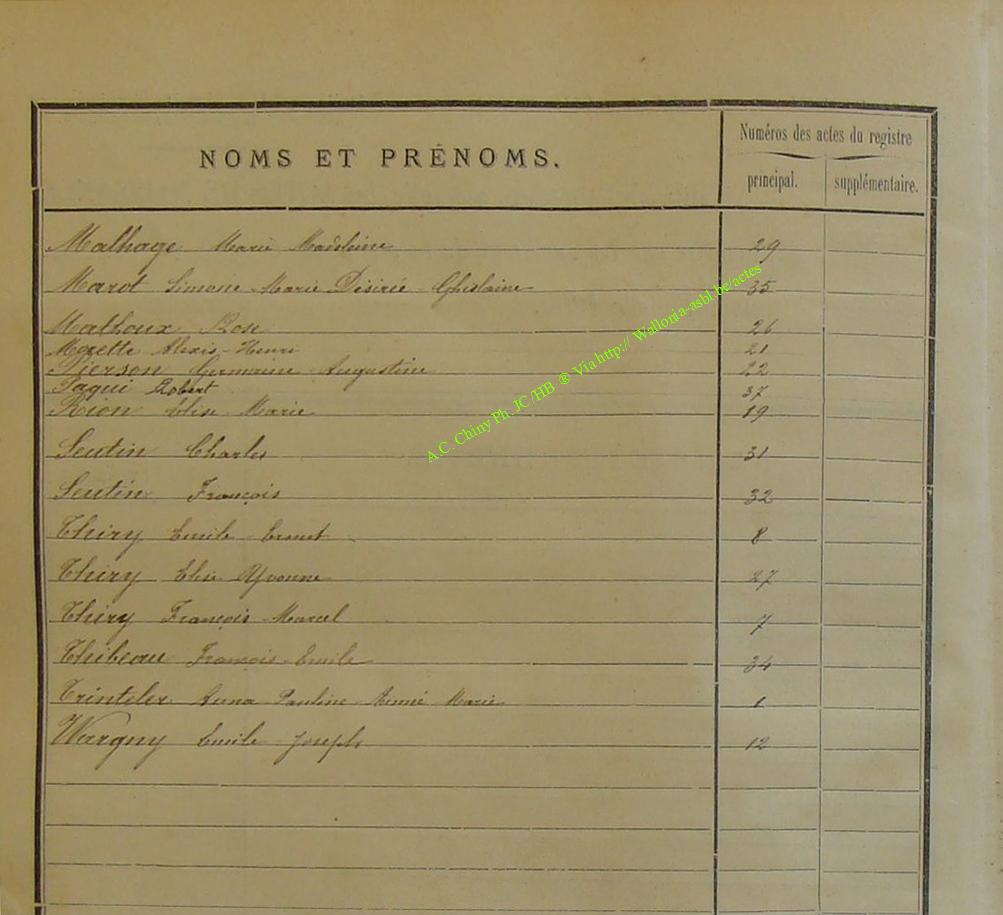 NOMS ET PRÉNOMS.
Numéros des actes du registre
principal. supplémentaire.
Malhage Marie Madeleine 29
Marot Simone-Marie Désirée-Ghislaine 35
Mathoux Rose 26
Mozette Alexis-Henri 21
Pierson Germaine-Augustine 22
Paqui Robert 37
Rion Elise-Marie 19
Seutin Charles 31
Seutin François 32
Thiry Emile-Ernest 8
Thiry Elise Yvonne 27
Thiry François-Marcel 7
Thibeau François-Emile 34
Trinteler Anna-Pauline-Aimé Marie 1
Wargny Emile-Joseph 12
A.C. Chiny Ph. JC /HB ® Via http:// Walloria-asbl.be/actes